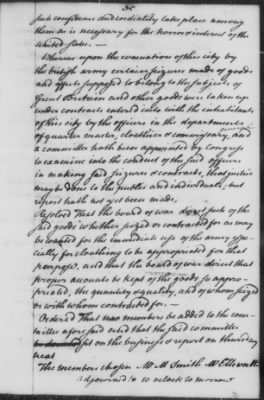 such confidence and cordiality take place among
them as is necessary for the honor & interest of the
United States.—
Whereas upon the evacuation of this city by
the british army certain seizures made of goods
and effects supposed to belong to the subjects of
Great Britain and other goods were taken up
under contracts entered into with the inhabitants
of this city by the officers in the departments
of quarter master, clothier & commissary, and
a committee hath been appointed by Congress
to examine into the conduct of the said officers
in making said seizures & contracts, that justice
may be done to the public and individuals, but
report hath not yet been made.
Resolved That the board of war direct such of the
said goods whether seized or contracted for as may
be wanted for the immediate use of the army espe
cially for cloathing to be appropriated for that
purpose, and that the board of war direct that
proper accounts be kept of the goods so appro-
priated, the quantity & quality, and of whom seized
or with whom contracted for.—
Ordered That members be added to the com-
mittee aforesaid and that the said committee
sit on the business & report on thursday
next
The members chosen Mr M Smith Mr Ellsworth
Adjourned to 10 oClock to morrow